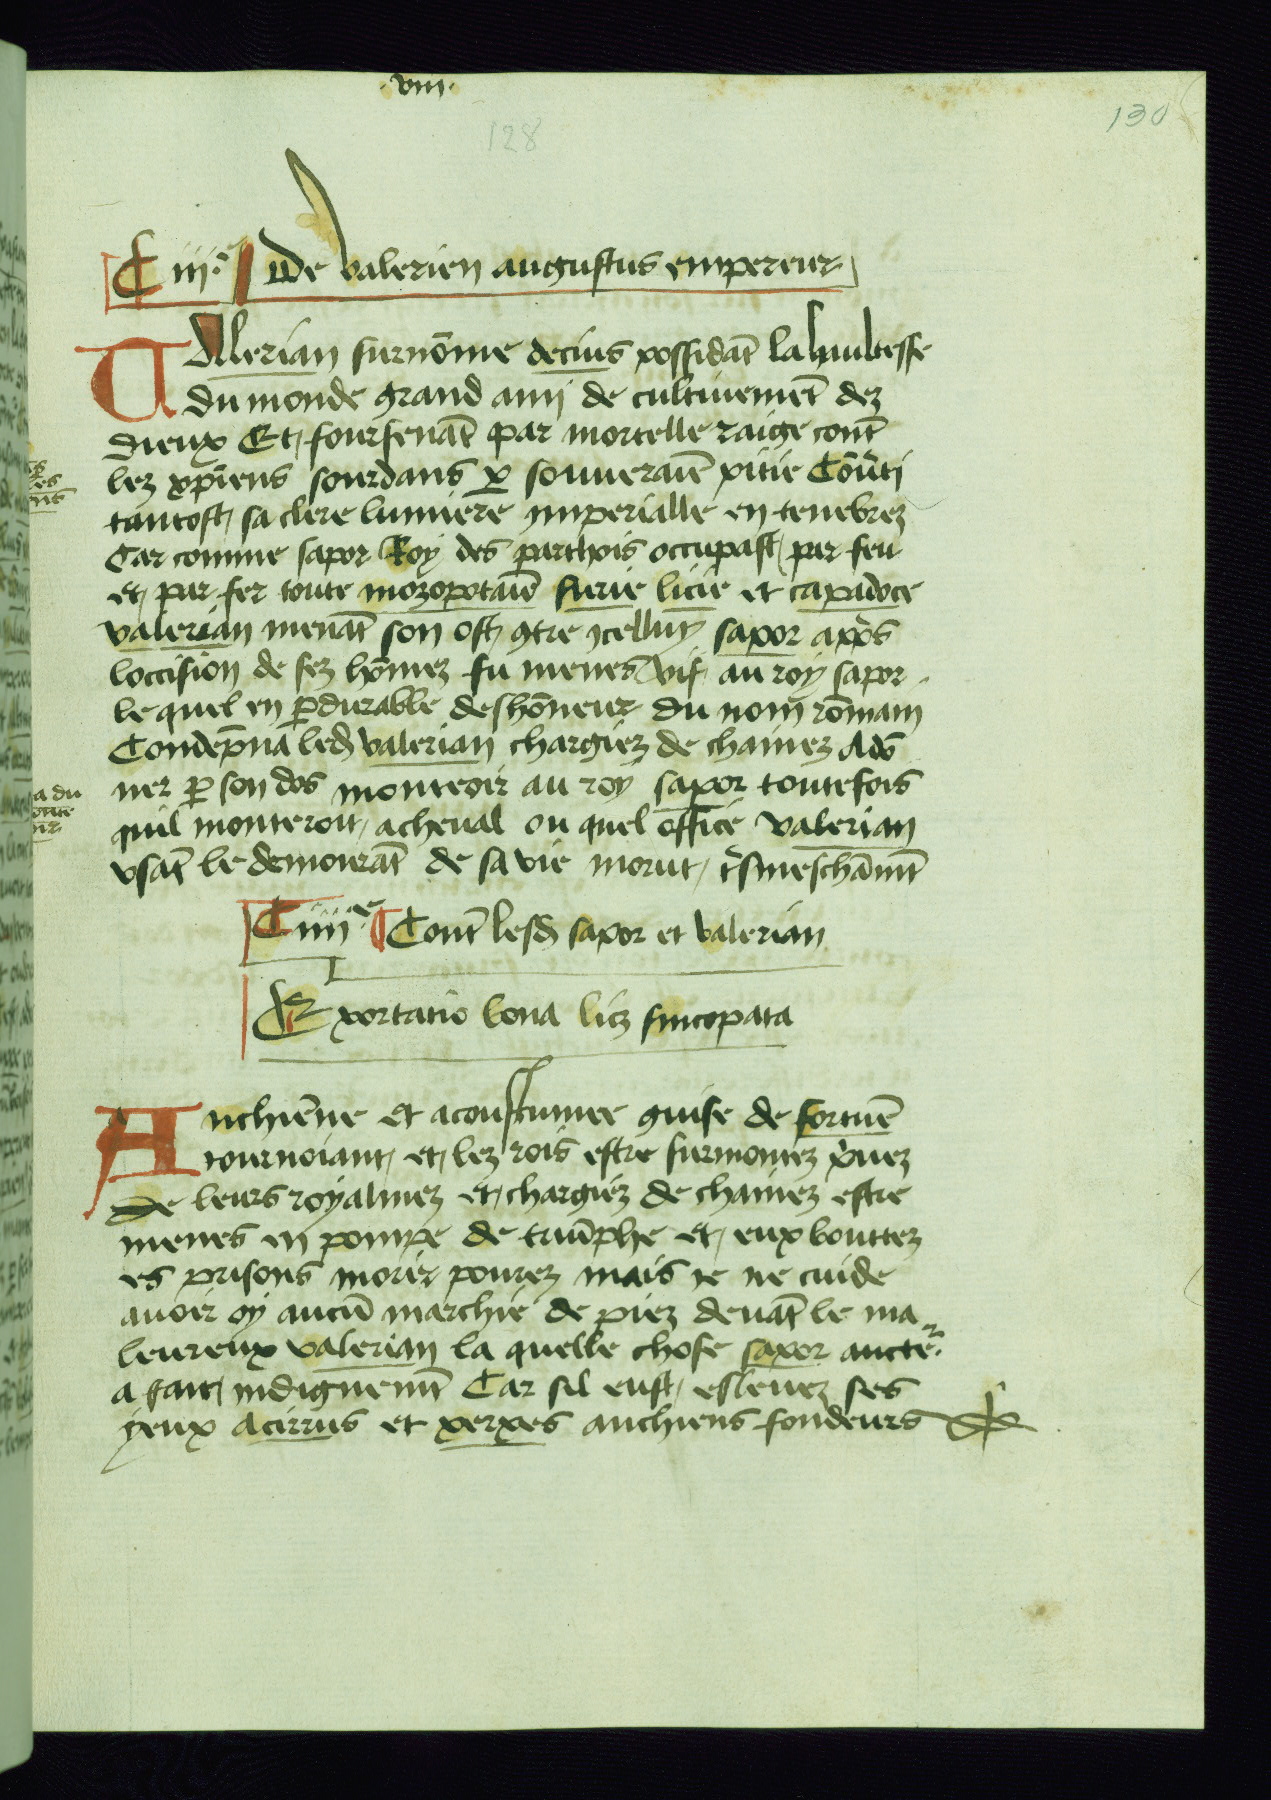 .viii.
130
128
C iiie De valerien augustus empereur
Vallerian surnōme decius possidāt la haultesse
du monde grand ami de cultivemēt dez
dieux Et foursenāt par mortelle raige cont̄
lez xp̄iens sourdans p̱ souveraīe pitie Cōv̄ti
tantost sa clere lumiere imperialle en tenebrez
Car comme sapor Roy des parthois occupast par feu
et par fer toute mozopotaīe surie licie et capadoce
valerian menāt son ost 9tre ycelluy sapor ap̄s
loccision de sez hōmez fu menes vif au roy sapor
le quel en p̱durable deshōneur du nom rōmain
Condēpna led̄ valerian chargiez de chainez Adō
ner p̱ son dos monteoir au roy sapor toutefois
quil monteroit a cheval ou quel office valerian
usāt le demourāt de sa vie morut t̄smeschāmt̄
C iiiie Cont̄ lesd̄ sapor et valerian
Exportatio bona licz sincopata
Anchiēne et acoustumee guise de fortuē
tournoiant et lez rois estre surmontez p̄vez
De leurs royalmez et chargiez de chainez estre
menes en pompe de triūphe et eux bouttez
es prisons morir povrez mais ie ne cuide
avoir oy aucū marchie de piez devāt le ma
leureux valerian la quelle chose sapor aucteᷣ
a fait indignemt̄ Car sil eust eslevez ses
yeux a cirrus et xerxes anchiens fondeurs